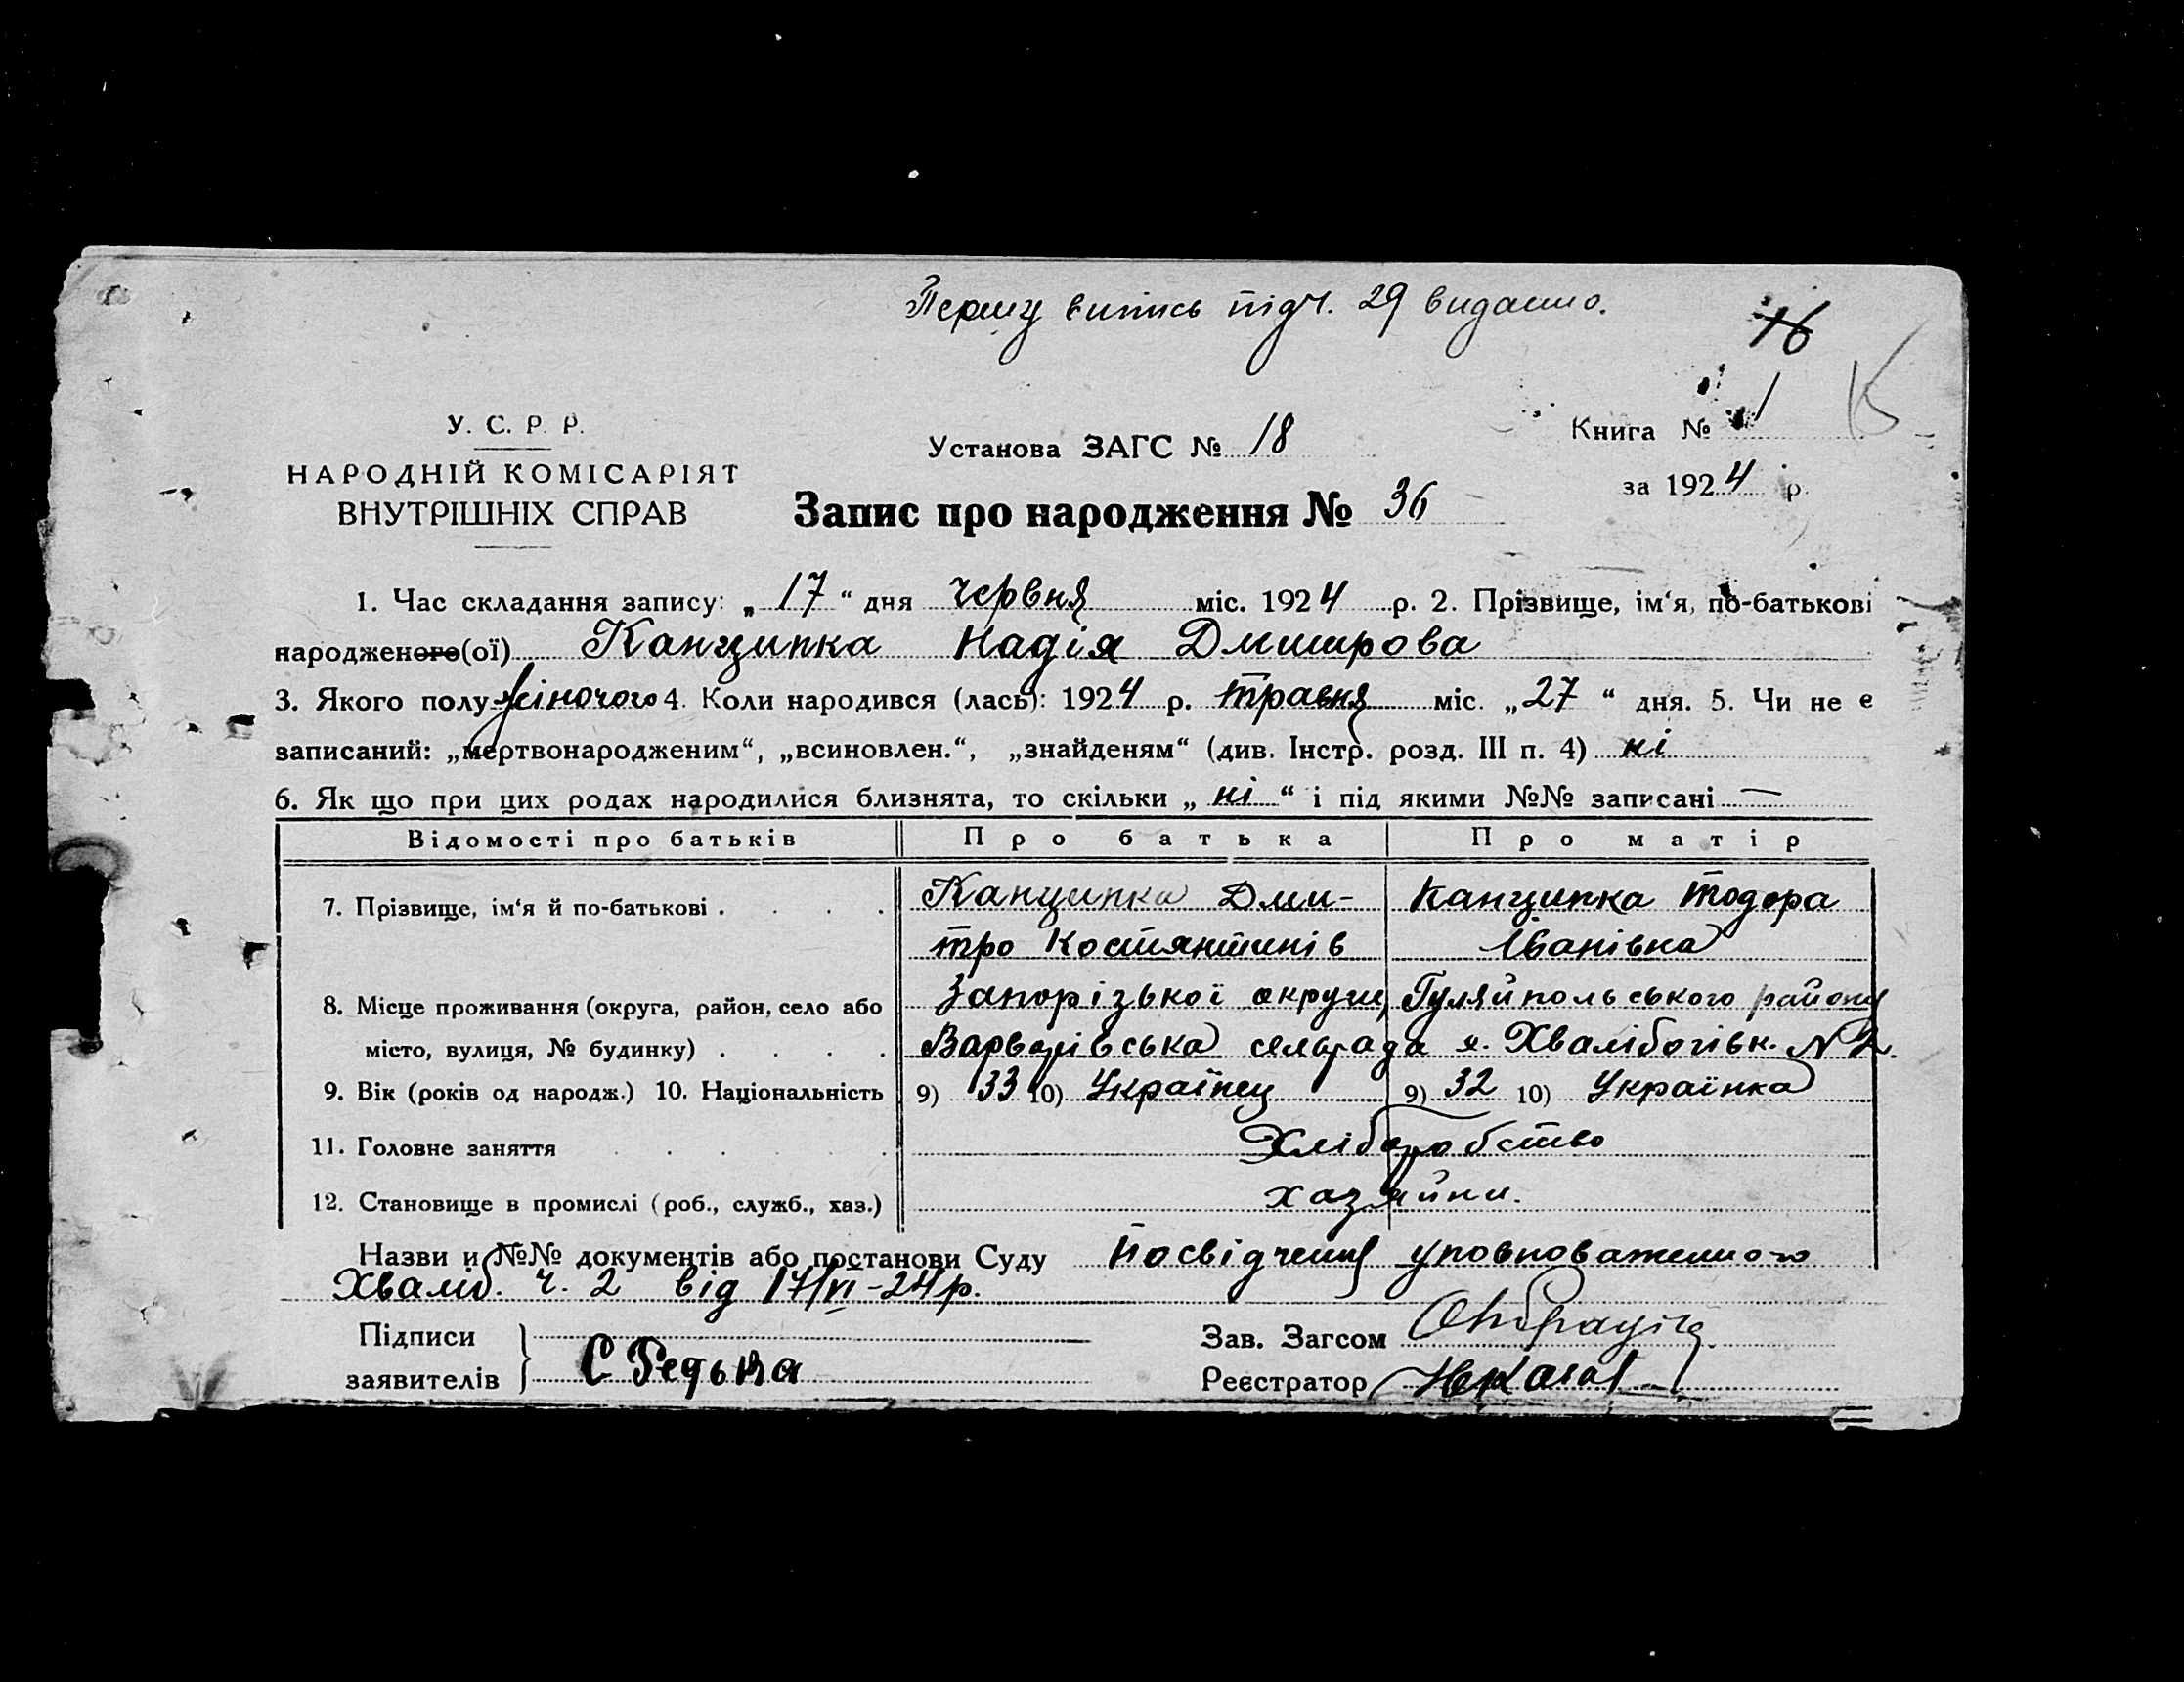 Першу випись підч. 29 видано.
16
К
У. С. Р. Р.
НАРОДНІЙ КОМІСАРІЯТ
ВНУТРІШНІХ СПРАВ
Установа ЗАГС № 18
Книга № 1
за 1924 р.
Запис про народження № 36
1. Час складання запису: „ 17 “ дня червня міс. 1924 р. 2. Прізвище, ім‘я, по-батькові
народженого(ої) Канципка Надія Дмитрова
3. Якого полу жіночого 4. Коли народився (лась): 1924 р. травня міс. „ 27 “ дня. 5. Чи не є
записаний: „мертвонародженим“, „всиновлен.“, „знайденям“ (див. Інстр. розд. III п. 4) ні
6. Як що при цих родах народилися близнята, то скільки „ ні “ і під якими №№ записані —
Відомості про батьків Про батька Про матір
7. Прізвище, ім‘я й по-батькові . . . . Канципка Дми- Канципка Тодора
тро Костянтинів Іванівна
8. Місце проживання (округа, район, село або Запорізької округи, Гуляйпольського району
місто, вулиця, № будинку) . . . . Варварівська сельрада х. Хвалібогівк. N 2.
9. Вік (років од народж.) 10. Національність 9) 33 10) Українец 9) 32 10) Українка
11. Головне заняття . . . . . . Хліборобство
12. Становище в промислі (роб., служб., хаз.) хазяйни.
Назви и №№ документів або постанови Суду Посвідчення уповноваженного
Хваліб. ч. 2 від 17/VI-24р.
Підписи
заявителів С Редька
Зав. Загсом
Реєстратор